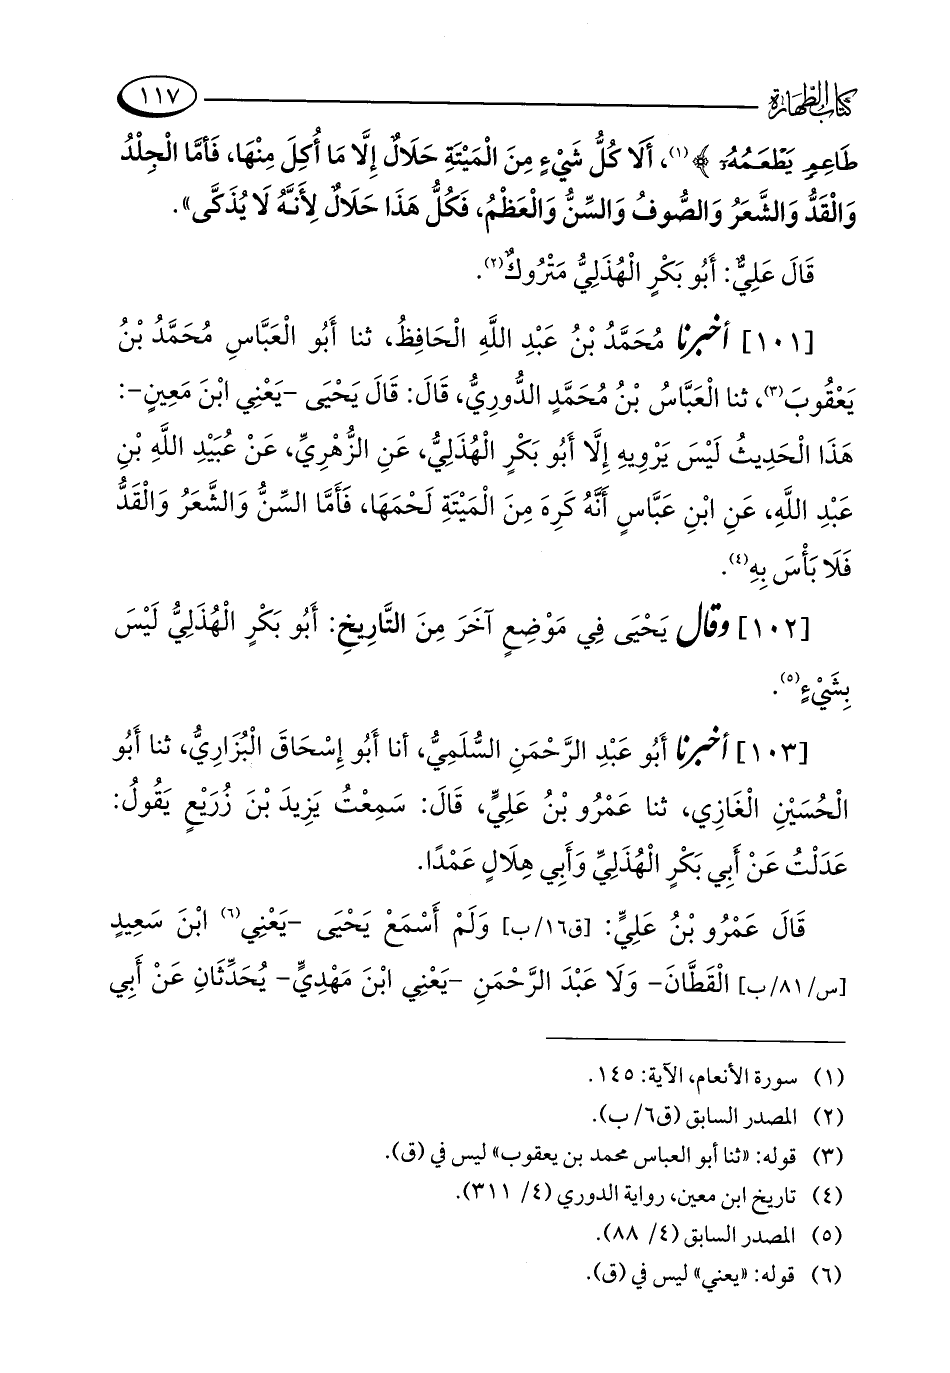 كتاب الطهارة ١١٧
طَاعِمٍ يَطْعَمُهُۥٓ ﴾(١)، أَلَا كُلُّ شَيْءٍ مِنَ الْمَيْتَةِ حَلَالٌ إِلَّا مَا أُكِلَ مِنْهَا، فَأَمَّا الْجِلْدُ
وَالْقَدُّ وَالشَّعَرُ وَالصُّوفُ وَالسِّنُّ وَالْعَظْمُ، فَكُلُّ هَذَا حَلَالٌ لِأَنَّهُ لَا يُذَكَّى».
قَالَ عَلِيٌّ: أَبُو بَكْرٍ الْهُذَلِيُّ مَتْرُوكٌ(٢).
[١٠١] أخبرنا مُحَمَّدُ بْنُ عَبْدِ اللَّهِ الْحَافِظُ، ثنا أَبُو الْعَبَّاسِ مُحَمَّدُ بْنُ
يَعْقُوبَ(٣)، ثنا الْعَبَّاسُ بْنُ مُحَمَّدٍ الدُّورِيُّ، قَالَ: قَالَ يَحْيَى -يَعْنِي ابْنَ مَعِينٍ-:
هَذَا الْحَدِيثُ لَيْسَ يَرْوِيهِ إِلَّا أَبُو بَكْرٍ الْهُذَلِيُّ، عَنِ الزُّهْرِيِّ، عَنْ عُبَيْدِ اللَّهِ بْنِ
عَبْدِ اللَّهِ، عَنِ ابْنِ عَبَّاسٍ أَنَّهُ كَرِهَ مِنَ الْمَيْتَةِ لَحْمَهَا، فَأَمَّا السِّنُّ وَالشَّعَرُ وَالْقَدُّ
فَلَا بَأْسَ بِهِ(٤).
[١٠٢] وقال يَحْيَى فِي مَوْضِعٍ آخَرَ مِنَ التَّارِيخِ: أَبُو بَكْرٍ الْهُذَلِيُّ لَيْسَ
بِشَيْءٍ(٥).
[١٠٣] أخبرنا أَبُو عَبْدِ الرَّحْمَنِ السُّلَمِيُّ، أنا أَبُو إِسْحَاقَ الْبُزَارِيُّ، ثنا أَبُو
الْحُسَيْنِ الْغَازِي، ثنا عَمْرُو بْنُ عَلِيٍّ، قَالَ: سَمِعْتُ يَزِيدَ بْنَ زُرَيْعٍ يَقُولُ:
عَدَلْتُ عَنْ أَبِي بَكْرٍ الْهُذَلِيِّ وَأَبِي هِلَالٍ عَمْدًا.
قَالَ عَمْرُو بْنُ عَلِيٍّ: [ق١٦/ب] وَلَمْ أَسْمَعْ يَحْيَى -يَعْنِي(٦) ابْنَ سَعِيدٍ
[س/٨١/ب] الْقَطَّانَ- وَلَا عَبْدَ الرَّحْمَنِ -يَعْنِي ابْنَ مَهْدِيٍّ- يُحَدِّثَانِ عَنْ أَبِي
(١) سورة الأنعام، الآية: ١٤٥.
(٢) المصدر السابق (ق٦/ ب).
(٣) قوله: «ثنا أبو العباس محمد بن يعقوب» ليس في (ق).
(٤) تاريخ ابن معين، رواية الدوري (٤/ ٣١١).
(٥) المصدر السابق (٤/ ٨٨).
(٦) قوله: «يعني» ليس في (ق).